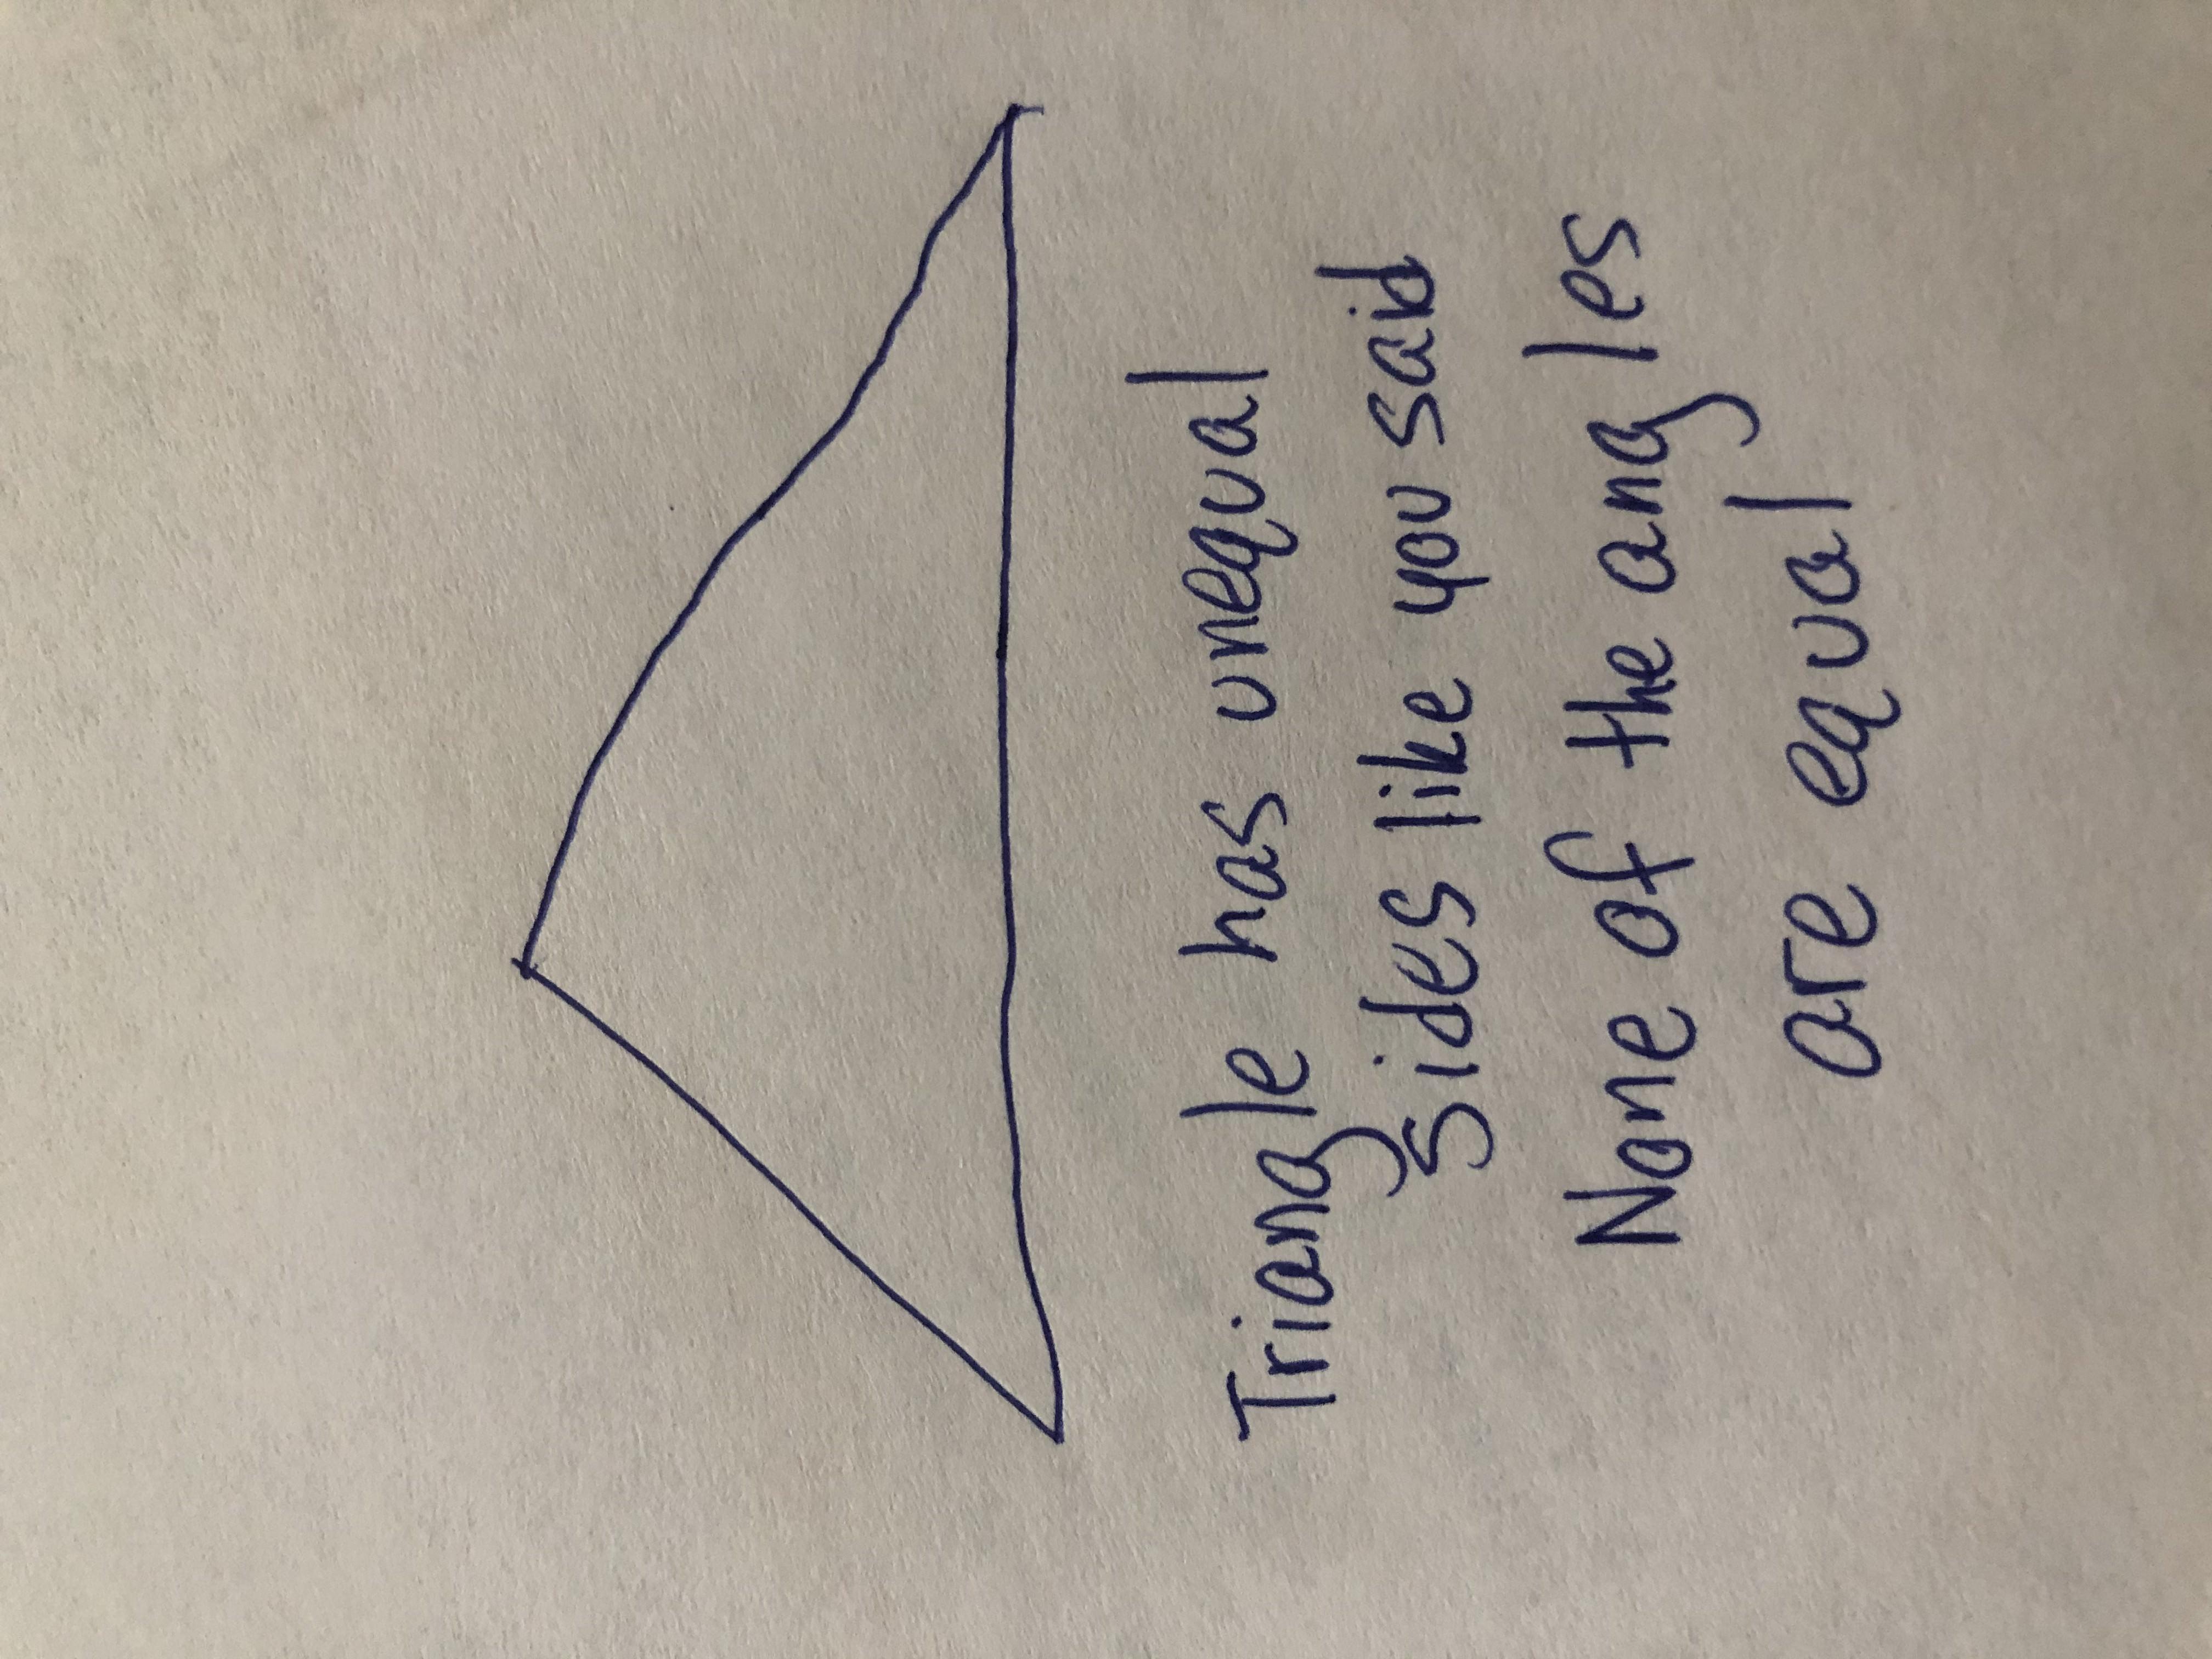 Triangle has unequal
sides like you said
None of the angles
are equal